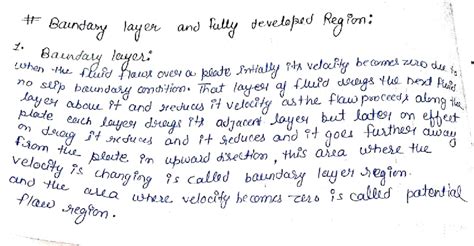 # Boundary layer and fully developed Region:
1. Boundary layer:
when the fluid flows over a plate intially its velocity becomes zero due to
no slip boundary condition. That layer of fluid drags the next fluid
layer above it and reduces it velocity as the flow proceeds along the
plate each layer drags its adjacent layer but later on effect
on drag it reduces and it reduces and it goes further away
from the plate in upward direction, this area where the
velocity is changing is called boundary layer region.
and the area where velocity becomes zero is called potential
flow region.